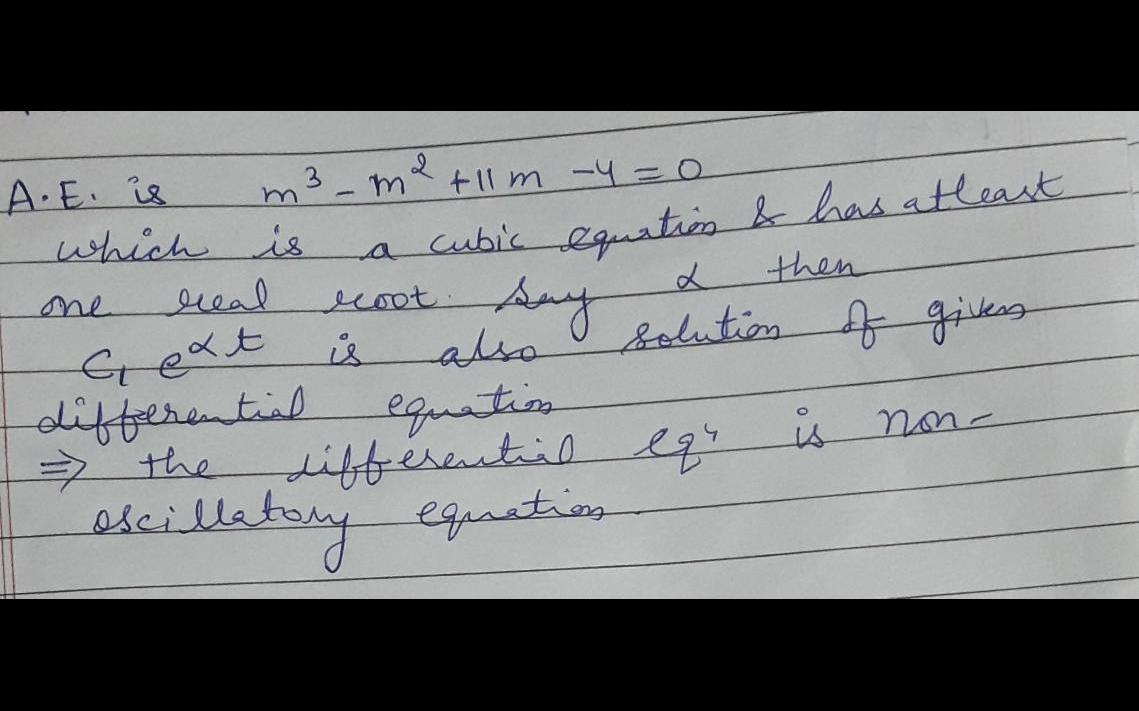 A.E. is m³ - m² + 11m - 4 = 0
which is a cubic equation & has atleast
one real root. Say α then
C₁ e^αt is also solution of given
differential equation
⇒ the differential eqⁿ is non-
oscillatory equation